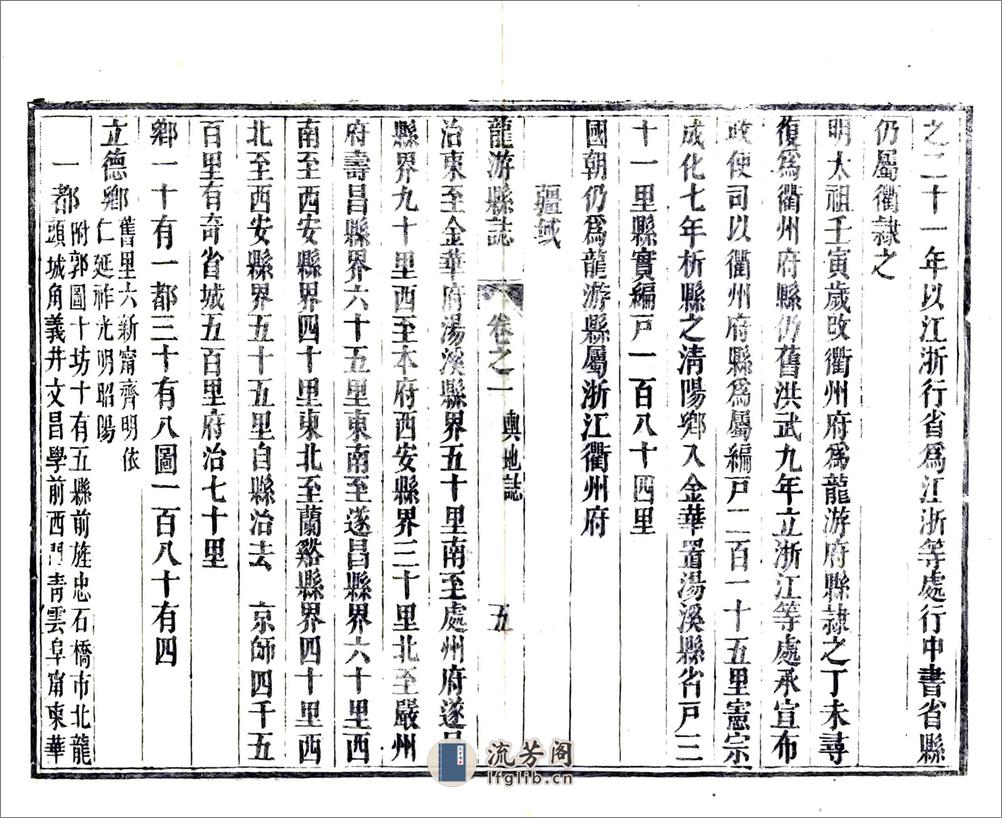 之二十一年以江浙行省爲江浙等處行中書省縣
仍屬衢隸之
明太祖壬寅歲改衢州府爲龍游府縣隸之丁未尋
復爲衢州府縣仍舊洪武九年立浙江等處承宣布
政使司以衢州府縣爲屬編戸二百一十五里憲宗
成化七年析縣之清陽鄉入金華置湯溪縣省戸三
十一里縣實編戸一百八十四里
國朝仍爲龍游縣屬浙江衢州府
疆域
龍游縣誌 卷之一 輿地誌 五
治東至金華府湯溪縣界五十里南至處州府遂昌
縣界九十里西至本府西安縣界三十里北至嚴州
府壽昌縣界六十五里東南至遂昌縣界六十里西
南至西安縣界四十里東北至蘭谿縣界四十里西
北至西安縣界五十五里自縣治去 京師四千五
百里有奇省城五百里府治七十里
鄉一十有一都三十有八圖一百八十有四
立德鄉舊里六新甯齊明依
仁延祚光明昭陽
一都附郭圖十坊十有五縣前旌忠石橋市北龍
頭城角義井文昌學前西門靑雲阜甯東華
流芳阁
lfglib.cn